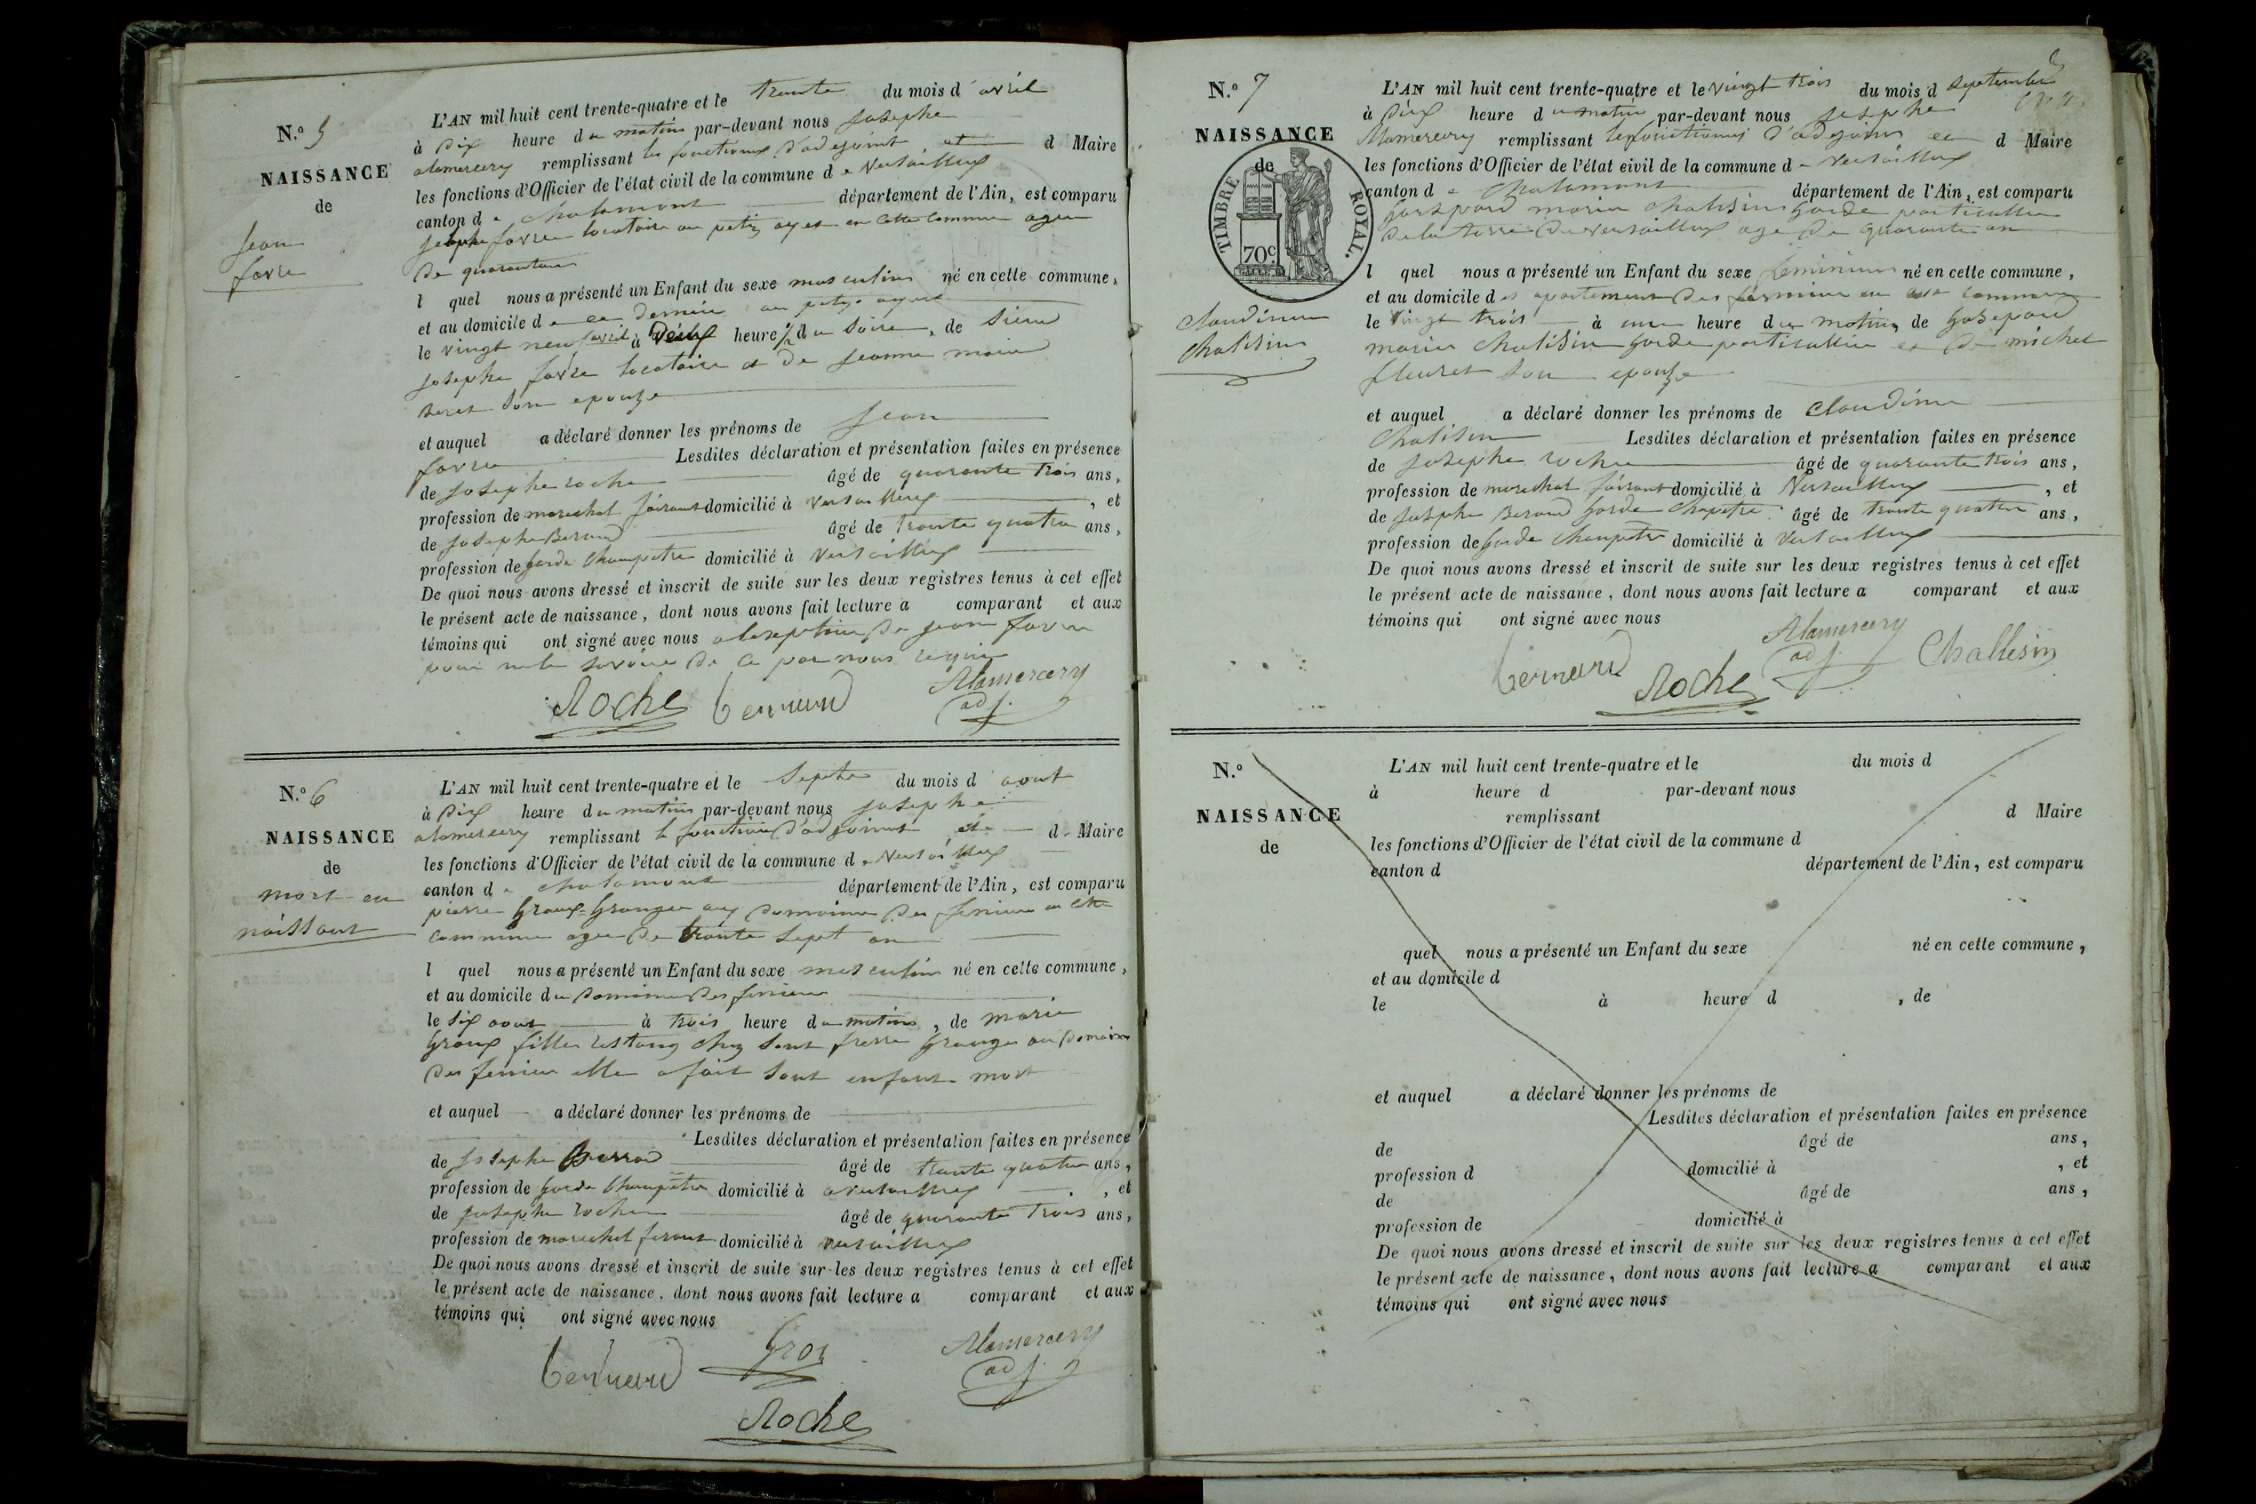 N.º 5
NAISSANCE
de
Jean
favre
L'AN mil huit cent trente-quatre et le trente du mois d'avril
à Dix heure du matin par-devant nous Josephe
alamercery remplissant les fonctions d'adejoint et d Maire
les fonctions d'Officier de l'état civil de la commune de Versailleux
canton de chalamont département de l'Ain, est comparu
Josephe favre locataire au petit ayet en cette commune agee
de quarante
l quel nous a présenté un Enfant du sexe masculin né en cette commune,
et au domicile de ce dernier au
le vingt neuf avril à heure 1/2 du Soire, de Sieur
Josephe favre locataire et de jeanne marie
son epouze
et auquel a déclaré donner les prénoms de Jean
favre Lesdites déclaration et présentation faites en présence
de Josephe roche âgé de quarante trois ans,
profession de marechal domicilié à Versailleux, et
de Josephe Beraud âgé de trante quatre ans,
profession de garde champetre domicilié à Versailleux
De quoi nous avons dressé et inscrit de suite sur les deux registres tenus à cet effet
le présent acte de naissance, dont nous avons fait lecture a comparant et aux
témoins qui ont signé avec nous a lexeption de jean favre
pour ne le savoire de ce par nous requi
Roche berneaud Alamercery
adj.
N.º 6
NAISSANCE
de
mort en
naissant
L'AN mil huit cent trente-quatre et le Septe du mois d'aout
à Dix heure du matin par-devant nous Josephe
alamercery remplissant le fonction d'adjoint et d Maire
les fonctions d'Officier de l'état civil de la commune de Versailleux
canton de chalamont département de l'Ain, est comparu
pierre Groux Granger au domaine des en cette
commune agee de trante Sept an
l quel nous a présenté un Enfant du sexe masculin né en cette commune,
et au domicile du domaine des
le Six aout à trois heure du matin, de marie
Groux fille restang chez Sont frerre Granger au Domaine
des elle a fait Sont enfant mort
et auquel a déclaré donner les prénoms de
Lesdites déclaration et présentation faites en présence
de Josephe Berraud âgé de trante quatre ans,
profession de garde champetre domicilié à a versailleux, et
de Josephe roche âgé de quarante trois ans,
profession de marechal ferant domicilié à versailleux
De quoi nous avons dressé et inscrit de suite sur les deux registres tenus à cet effet
le présent acte de naissance, dont nous avons fait lecture a comparant et aux
témoins qui ont signé avec nous
berneaud Gros Alamercery
adj.
Roche
N.º 7
NAISSANCE
de
TIMBRE ROYAL.
70c
claudine
chalisin
L'AN mil huit cent trente-quatre et le vingt trois du mois d septembre
à Dix heure du matin par-devant nous Josephe
Alamercery remplissant les fonctions d'adejoin et d Maire
les fonctions d'Officier de l'état civil de la commune de Versailleux
canton de chalamont département de l'Ain, est comparu
Gaspard marie chalisin garde particullie
de la terre de versailleux age de quarante an
l quel nous a présenté un Enfant du sexe feminin né en cette commune,
et au domicile des apartement des en commune
le vingt trois à une heure du matin de Gaspard
marie chalisin garde particullie et de michel
fleuret Son epouze
et auquel a déclaré donner les prénoms de claudine
chalisin Lesdites déclaration et présentation faites en présence
de Josephe roche âgé de quarante trois ans,
profession de marechal domicilié à Versailleux, et
de Josephe Beraud garde chapetre âgé de trante quatre ans,
profession de garde champetre domicilié à Versailleux
De quoi nous avons dressé et inscrit de suite sur les deux registres tenus à cet effet
le présent acte de naissance, dont nous avons fait lecture a comparant et aux
témoins qui ont signé avec nous
berneaud Roche Alamercery Challesin
adj.
N.º
NAISSANCE
de
L'AN mil huit cent trente-quatre et le du mois d
à heure d par-devant nous
remplissant d Maire
les fonctions d'Officier de l'état civil de la commune d
canton d département de l'Ain, est comparu
quel nous a présenté un Enfant du sexe né en cette commune,
et au domicile d
le à heure d , de
et auquel a déclaré donner les prénoms de
Lesdites déclaration et présentation faites en présence
de âgé de ans,
profession d domicilié à , et
de âgé de ans,
profession de domicilié à
De quoi nous avons dressé et inscrit de suite sur les deux registres tenus à cet effet
le présent acte de naissance, dont nous avons fait lecture a comparant et aux
témoins qui ont signé avec nous